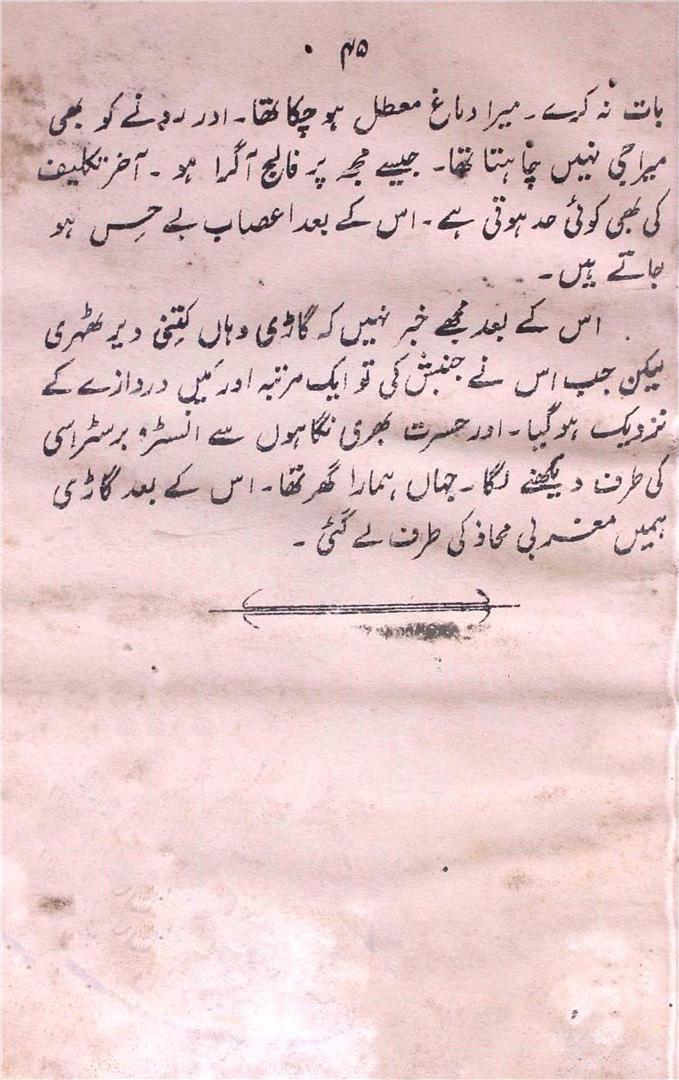 ۴۵
بات نہ کرے۔ میرا دماغ معطل ہو چکا تھا۔ اور رونے کو بھی
میرا جی نہیں چاہتا تھا۔ جیسے مجھ پر فالج آگرا ہو۔ آخر تکلیف
کی بھی کوئی حد ہوتی ہے۔ اس کے بعد اعصاب بے حِس ہو
جاتے ہیں۔
اس کے بعد مجھے خبر نہیں کہ گاڑی وہاں کِتنی دیر ٹھہری
لیکن جب اس نے جنبش کی تو ایک مرتبہ اور مَیں دروازے کے
نزدیک ہو گیا۔ اور حسرت بھری نگاہوں سے انسٹرو برسٹراسی
کی طرف دیکھنے لگا۔ جہاں ہمارا گھر تھا۔ اس کے بعد گاڑی
ہمیں مغربی محاذ کی طرف لے گئی۔